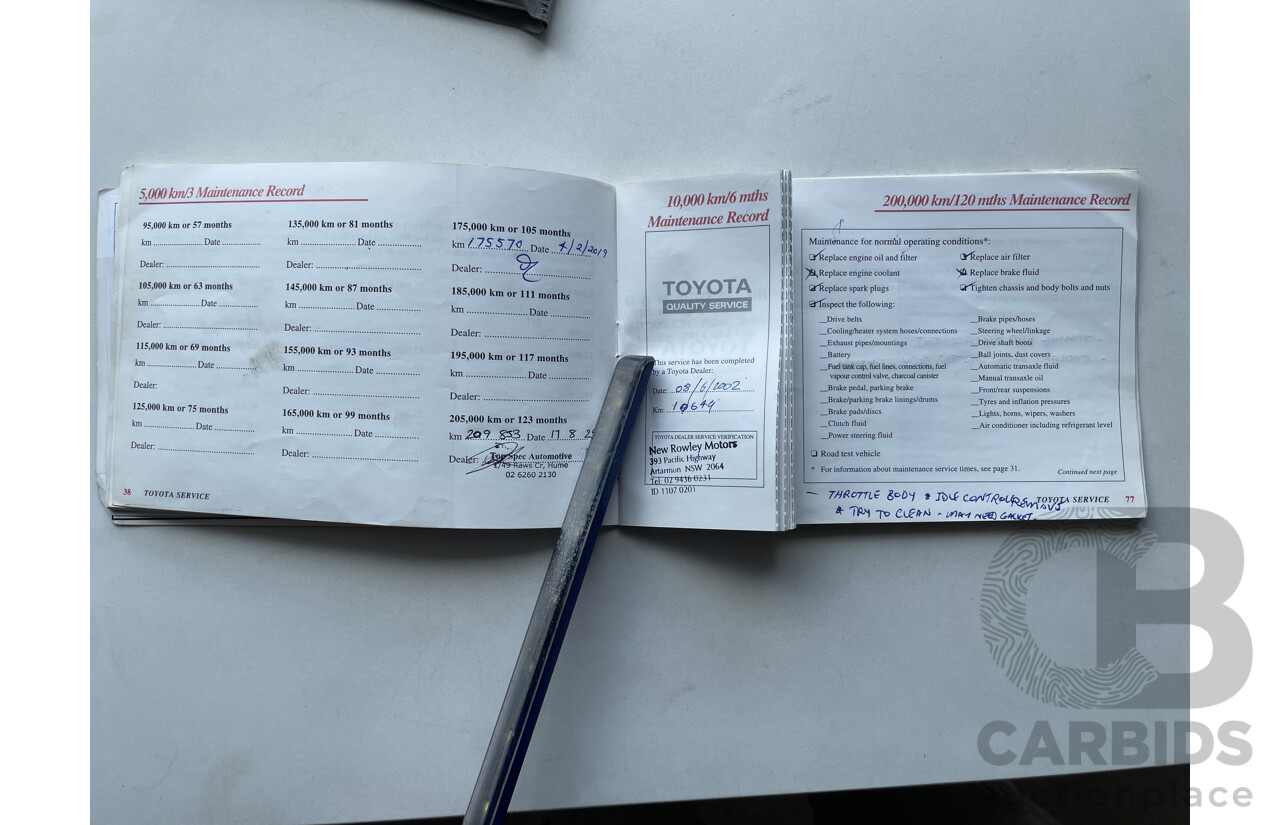 5,000 km/3 Maintenance Record
95,000 km or 57 months
km .................. Date ..................
Dealer: ..................
105,000 km or 63 months
km .................. Date ..................
Dealer: ..................
115,000 km or 69 months
km .................. Date ..................
Dealer:
125,000 km or 75 months
km .................. Date ..................
Dealer: ..................
38 TOYOTA SERVICE
135,000 km or 81 months
km .................. Date ..................
Dealer: ..................
145,000 km or 87 months
km .................. Date ..................
Dealer: ..................
155,000 km or 93 months
km .................. Date ..................
Dealer: ..................
165,000 km or 99 months
km .................. Date ..................
Dealer: ..................
175,000 km or 105 months
km 175570 Date 4/2/2019
Dealer: ..................
185,000 km or 111 months
km .................. Date ..................
Dealer: ..................
195,000 km or 117 months
km .................. Date ..................
Dealer: ..................
205,000 km or 123 months
km 209 853 Date 17 8
Dealer: Top Spec Automotive
1/49 Raws Cr, Hume
02 6260 2130
10,000 km/6 mths
Maintenance Record
TOYOTA
QUALITY SERVICE
This service has been completed
by a Toyota Dealer:
Date: 08/6/2002
Km: 10649
TOYOTA DEALER SERVICE VERIFICATION
New Rowley Motors
393 Pacific Highway
Artarmon NSW 2064
Tel: 02 9436 0231
ID 1107 0201
200,000 km/120 mths Maintenance Record
Maintenance for normal operating conditions*:
Replace engine oil and filter
Replace engine coolant
Replace spark plugs
Inspect the following:
Replace air filter
Replace brake fluid
Tighten chassis and body bolts and nuts
__Drive belts
__Cooling/heater system hoses/connections
__Exhaust pipes/mountings
__Battery
__Fuel tank cap, fuel lines, connections, fuel
vapour control valve, charcoal canister
__Brake pedal, parking brake
__Brake/parking brake linings/drums
__Brake pads/discs
__Clutch fluid
__Power steering fluid
__Brake pipes/hoses
__Steering wheel/linkage
__Drive shaft boots
__Ball joints, dust covers
__Automatic transaxle fluid
__Manual transaxle oil
__Front/rear suspensions
__Tyres and inflation pressures
__Lights, horns, wipers, washers
__Air conditioner including refrigerant level
Road test vehicle
* For information about maintenance service times, see page 31.
Continued next page
TOYOTA SERVICE 77
- THROTTLE BODY & IDLE CONTROL REMOVE
& TRY TO CLEAN - MAY NEED GASKET.
CB
CARBIDS
auctionplace